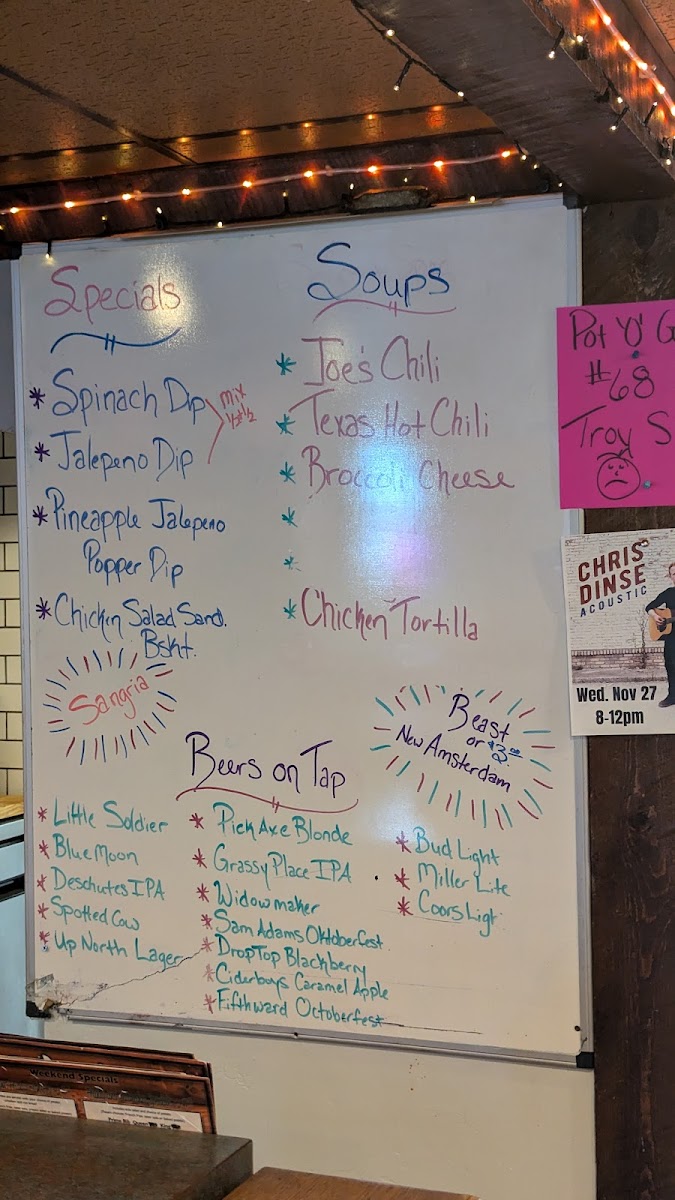 Specials
* Spinach Dip
mix
1/2 & 1/2
* Jalepeno Dip
* Pineapple Jalepeno
Popper Dip
* Chicken Salad Sand.
Bskt.
Sangria
Soups
* Joe's Chili
* Texas Hot Chili
* Broccoli Cheese
*
*
* Chicken Tortilla
Beast
or $3.00
New Amsterdam
Beers on Tap
* Little Soldier
* Blue Moon
* Deschutes IPA
* Spotted Cow
* Up North Lager
* Pick Axe Blonde
* Grassy Place IPA
* Widowmaker
* Sam Adams Oktoberfest
* Drop Top Blackberry
* Ciderboys Caramel Apple
* Fifthward Octoberfest
* Bud Light
* Miller Lite
* Coors Ligt
Pot 'O' G
#68
Troy S
CHRIS
DINSE
ACOUSTIC
Wed. Nov 27
8-12pm
Weekend Specials